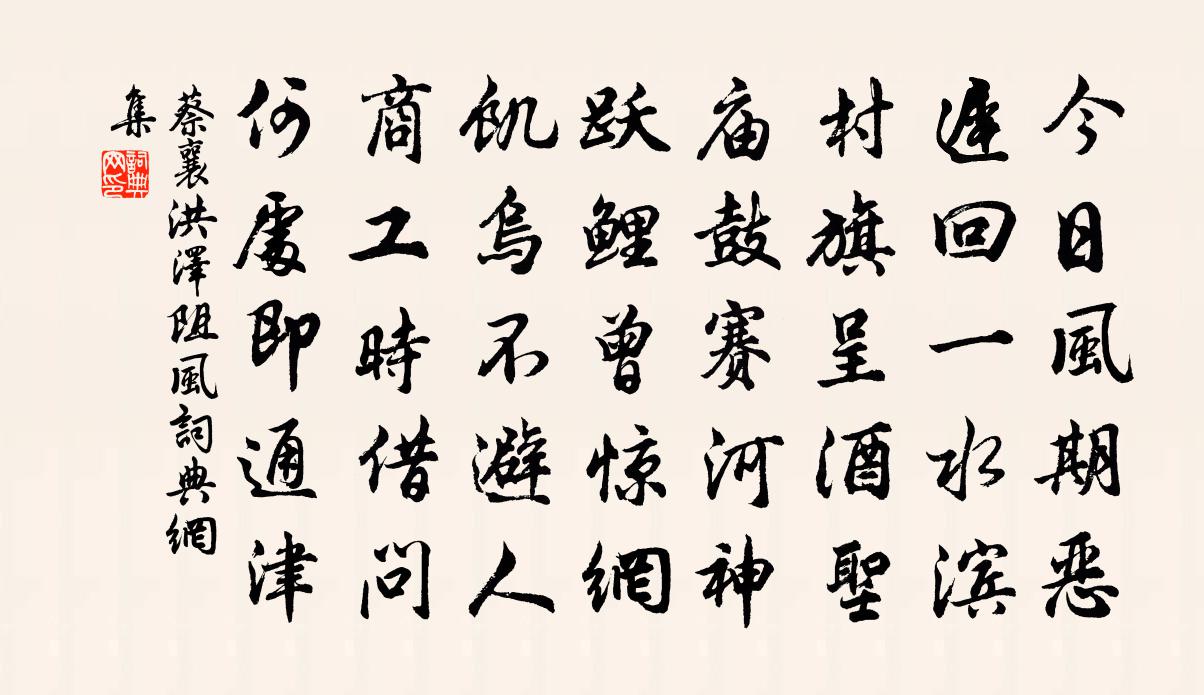 今日風期惡
遲回一水滨
村旗呈酒聖
庙鼓賽河神
跃鯉曾惊網
飢烏不避人
商工時借問
何處即通津
蔡襄洪澤阻風詞典網
集
詞典網印